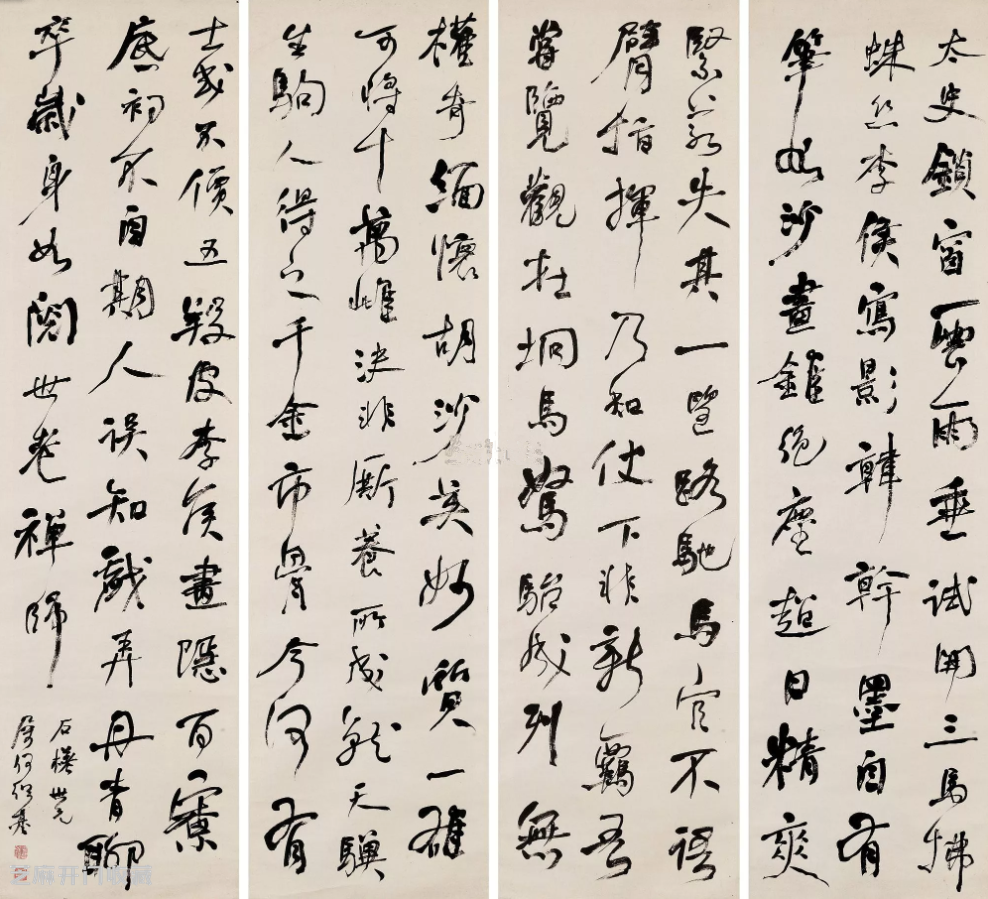 太史鎖窗雲雨垂試開三馬拂
蛛絲李侯寫影韓幹墨自有
筆如沙畫錐絕塵超日精爽
緊若失其一望路馳馬官不語
臂指揮乃知仗下非新羈吾
嘗覽觀在坰馬駑駘成列無
權奇緬懷胡沙英妙質一雄
可將十萬雌決非廝養所成就天驥
生駒人得之千金市骨今何有
士或不價五羖皮李侯畫隱百寮
底初不自期人誤知戲弄丹青聊
卒歲身如閱世老禪師
石樵世兄
屬何紹基
芝麻开门收藏